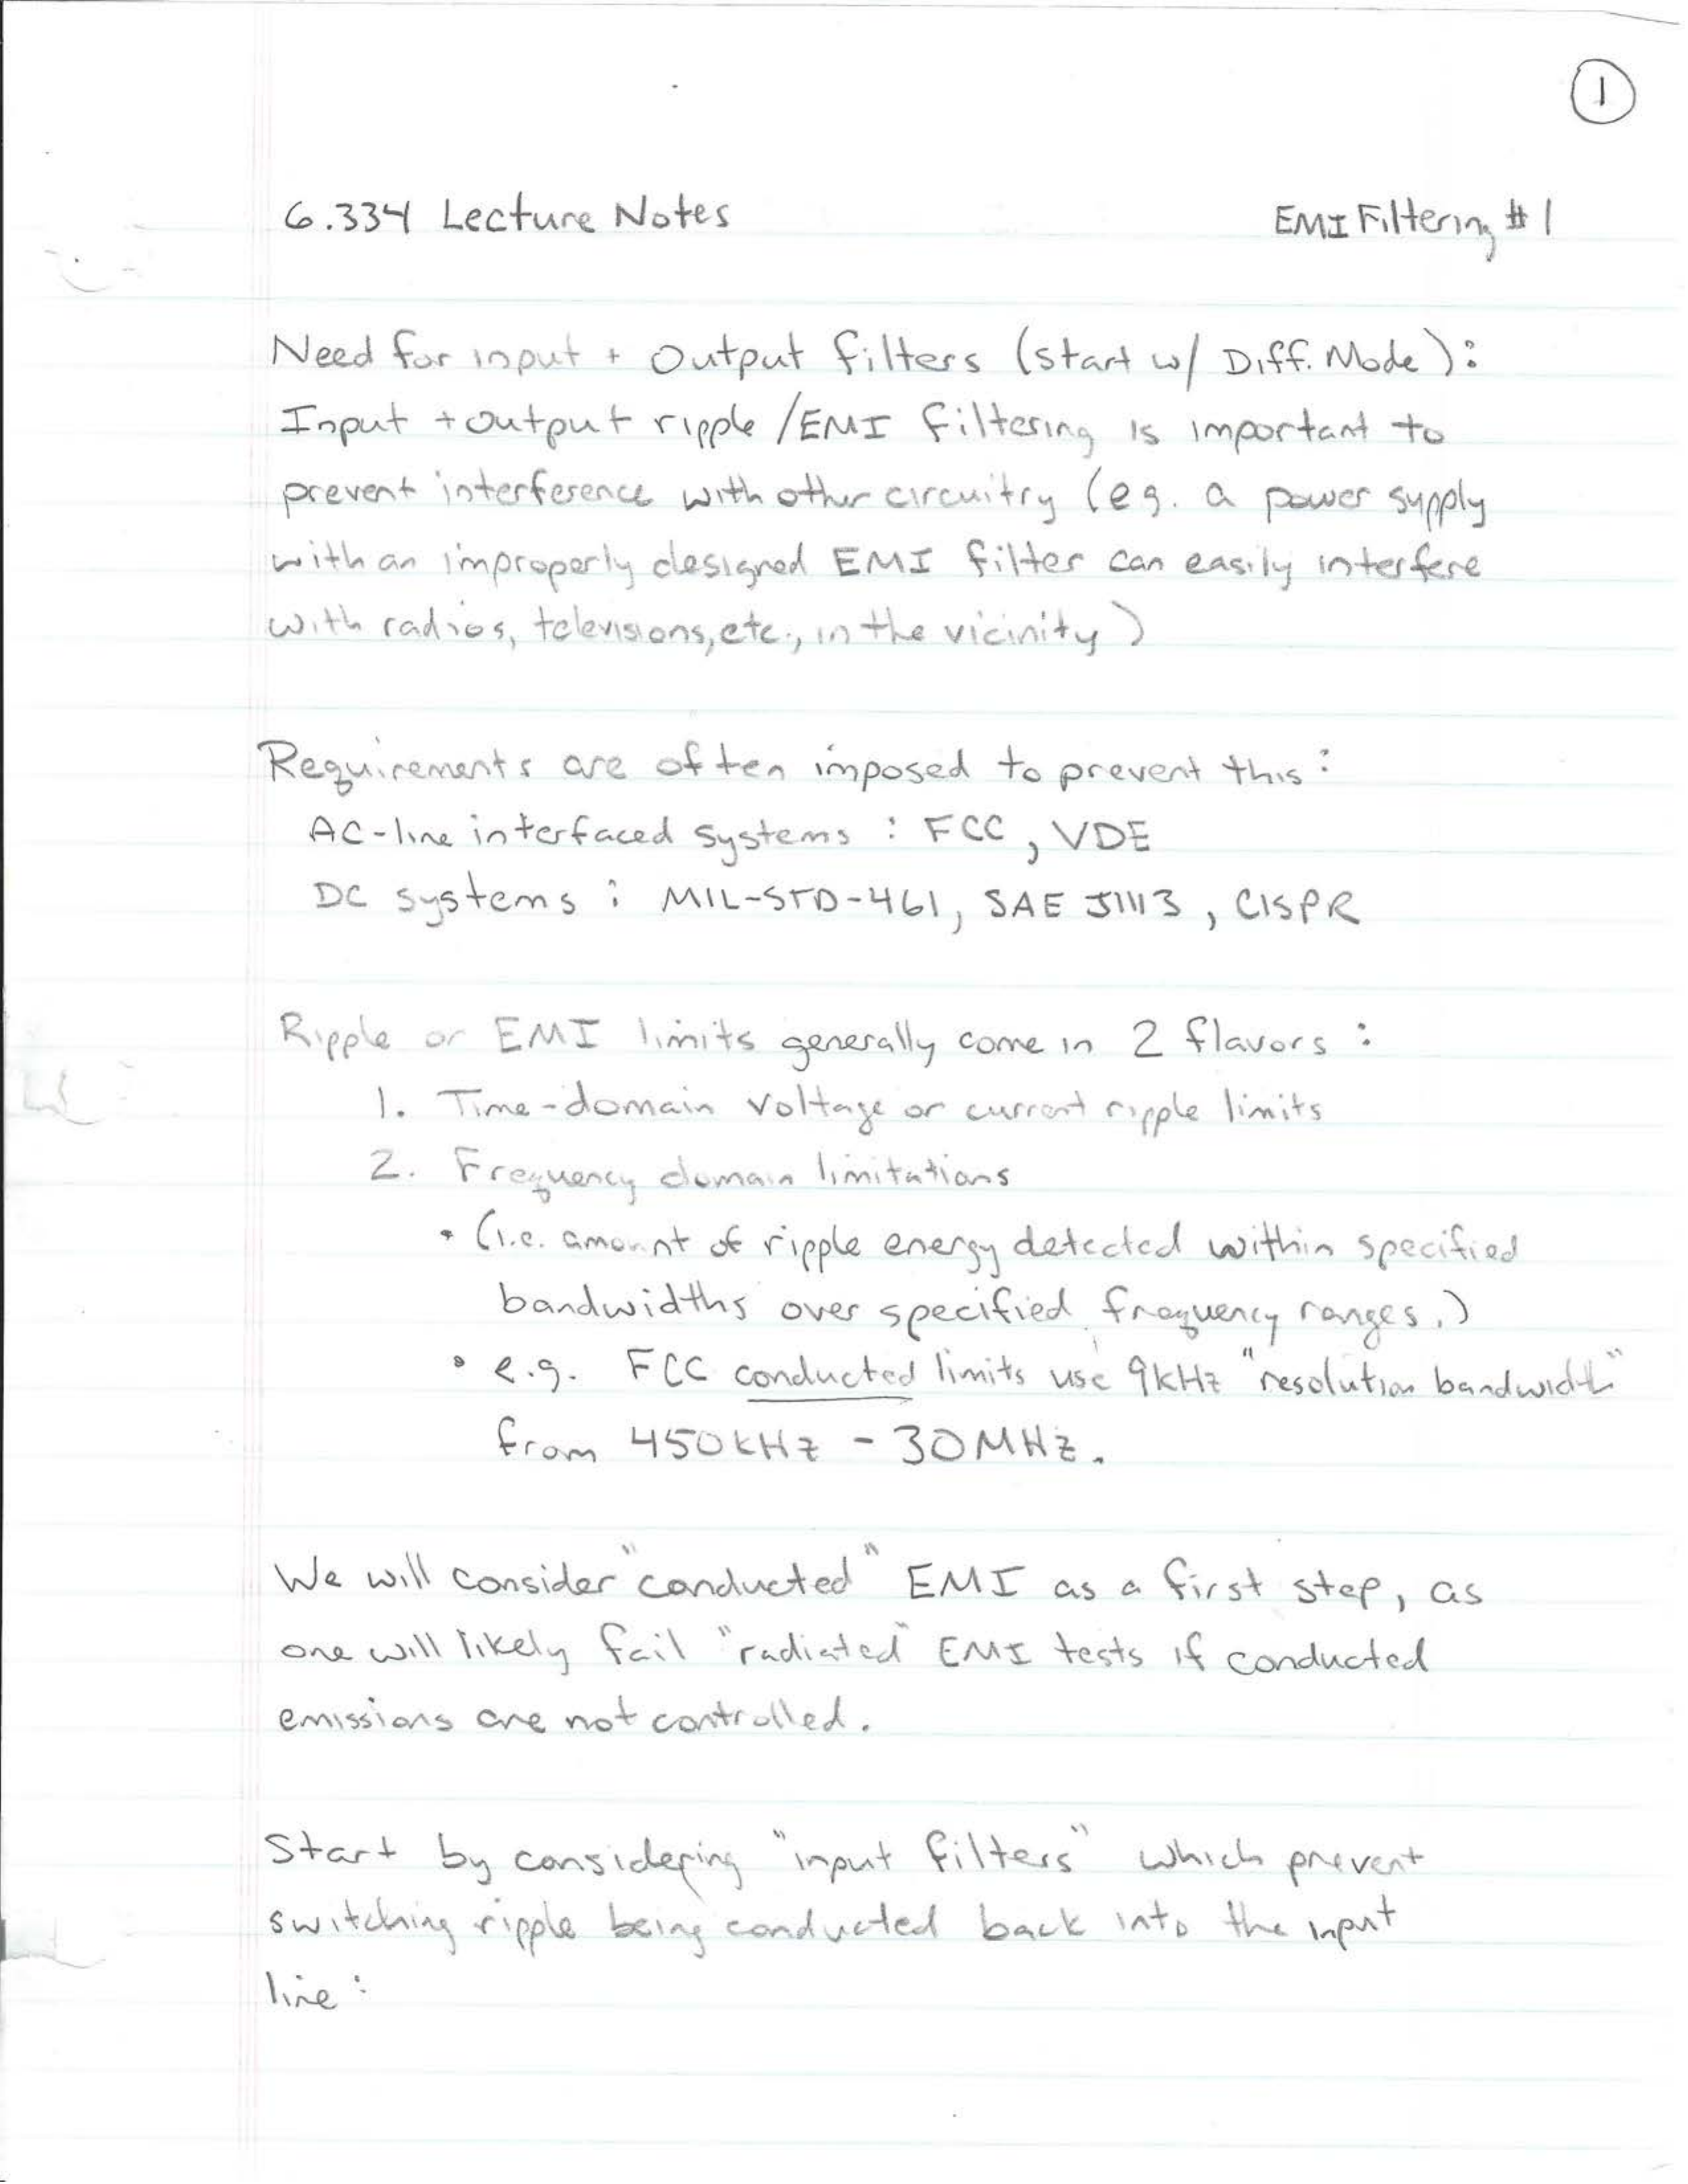 1
6.334 Lecture Notes
EMI Filtering #1
Need for input + Output filters (start w/ Diff. Mode):
Input + output ripple/EMI filtering is important to
prevent interference with other circuitry (eg. a power supply
with an improperly designed EMI filter can easily interfere
with radios, televisions, etc., in the vicinity)
Requirements are often imposed to prevent this:
AC-line interfaced systems : FCC, VDE
DC systems : MIL-STD-461, SAE J1113, CISPR
Ripple or EMI limits generally come in 2 flavors :
1. Time-domain voltage or current ripple limits
2. Frequency domain limitations
• (i.e. amount of ripple energy detected within specified
bandwidths over specified frequency ranges.)
• e.g. FCC conducted limits use 9kHz "resolution bandwidth"
from 450kHz - 30MHz.
We will consider "conducted" EMI as a first step, as
one will likely fail "radiated" EMI tests if conducted
emissions are not controlled.
Start by considering "input filters" which prevent
switching ripple being conducted back into the input
line :